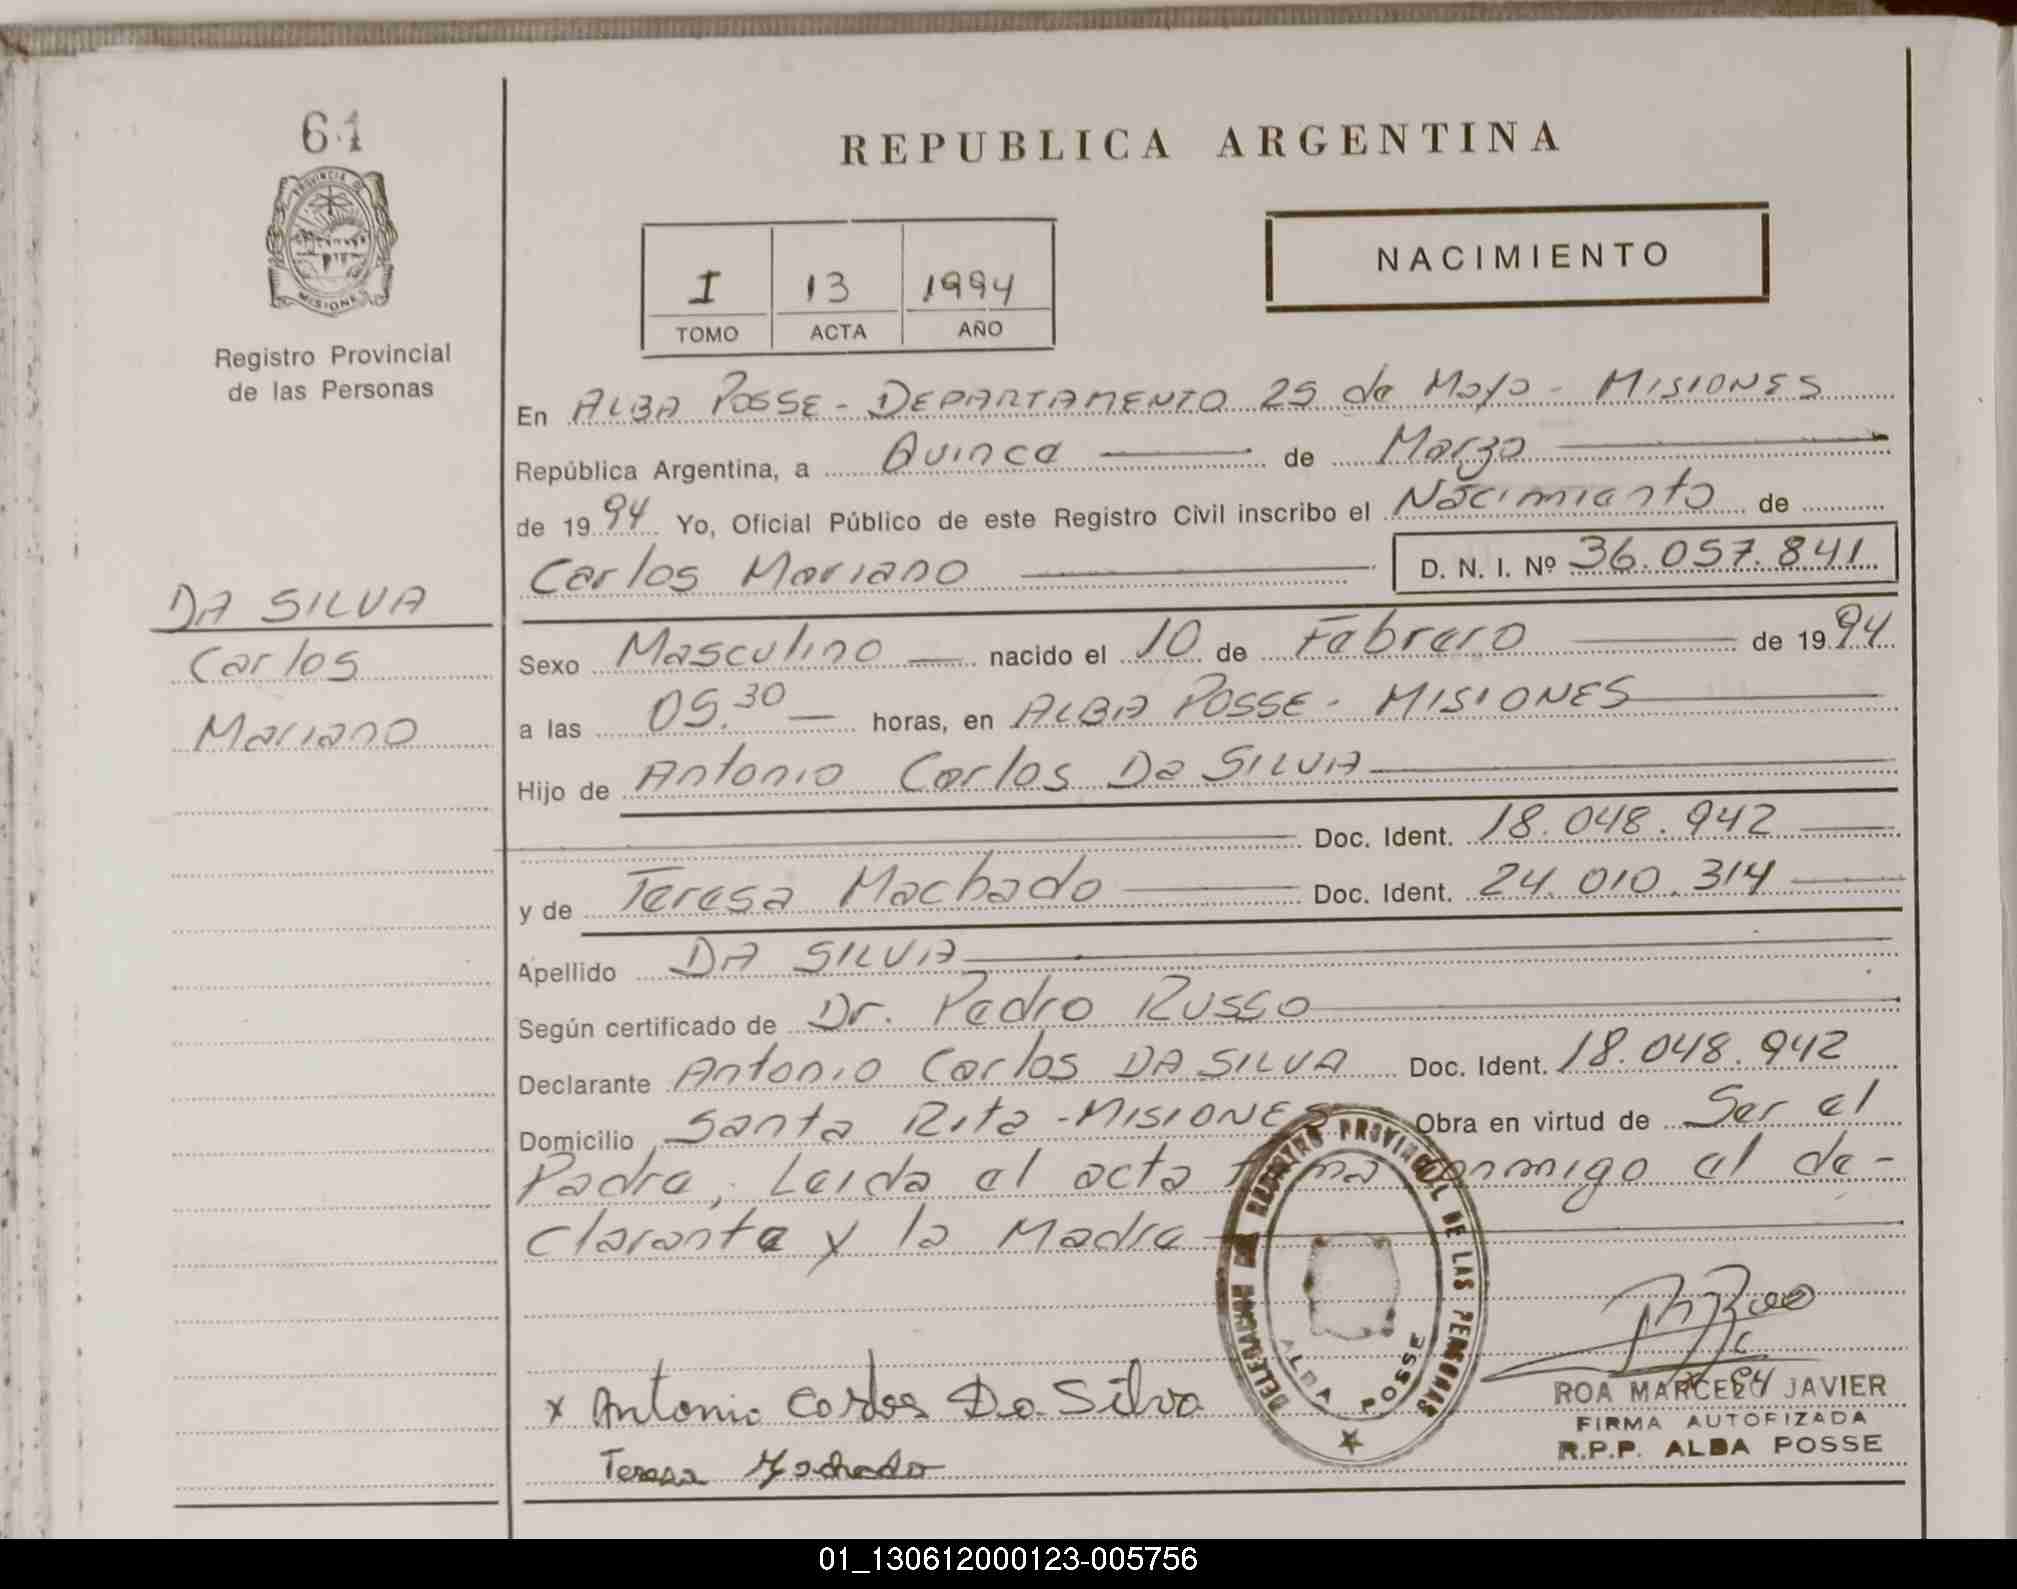 61
PROVINCIA DE
MISIONES
Registro Provincial
de las Personas
DA SILVA
Carlos
Mariano
REPUBLICA ARGENTINA
I 13 1994
TOMO ACTA AÑO
NACIMIENTO
En ALBA POSSE - DEPARTAMENTO 25 de Mayo - MISIONES
República Argentina, a Quince de Marzo
de 1994 Yo, Oficial Público de este Registro Civil inscribo el Nacimiento de
Carlos Mariano D. N. I. Nº 36.057.841
Sexo Masculino nacido el 10 de Febrero de 1994
a las 05.30 horas, en ALBA POSSE - MISIONES
Hijo de Antonio Carlos Da SILVA
Doc. Ident. 18.048.942
y de Teresa Machado Doc. Ident. 24.010.314
Apellido DA SILVA
Según certificado de Dr. Pedro Russo
Declarante Antonio Carlos DA SILVA Doc. Ident. 18.048.942
Domicilio Santa Rita - MISIONES Obra en virtud de Ser el
Padre, Leida el acta firma conmigo el de-
clarante y la Madre
DELEGACION DEL REGISTRO PROVINCIAL DE LAS PERSONAS
ALBA POSSE
x Antonio Carlos Da Silva
Teresa Machado
ROA MARCELO JAVIER
FIRMA AUTORIZADA
R.P.P. ALBA POSSE
01_130612000123-005756